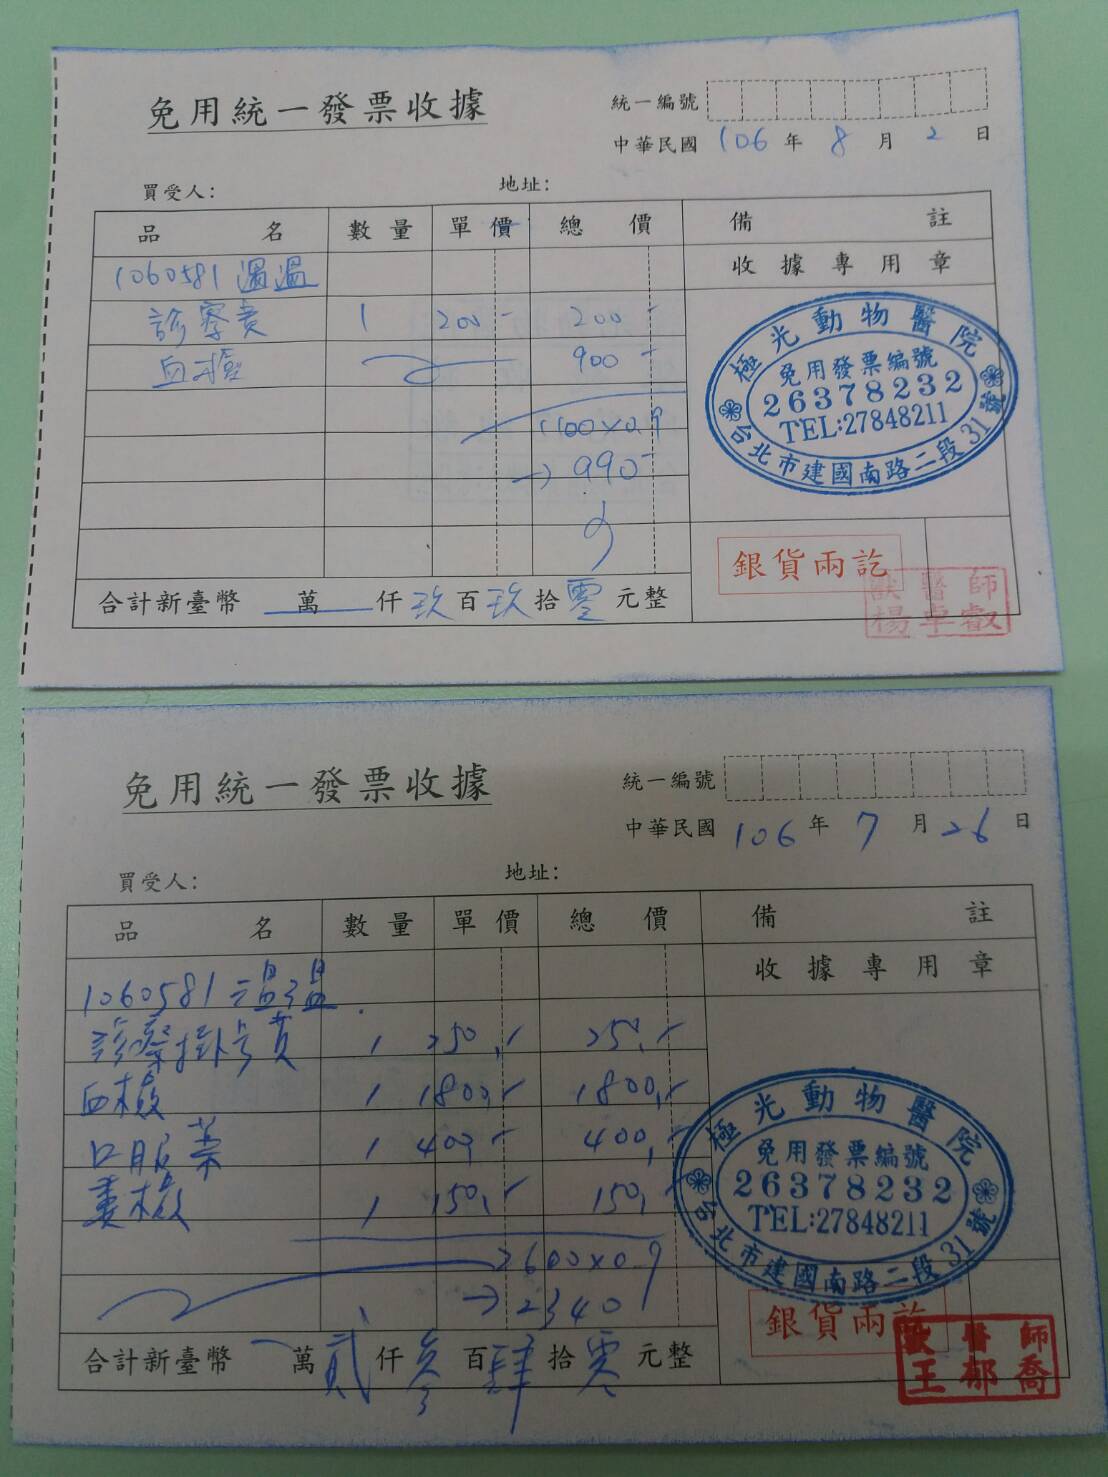 免用統一發票收據
統一編號
中華民國 106 年 8 月 2 日
買受人: 地址:
品名 數量 單價 總價 備註
收據專用章
1060581 溫溫
診察費 1 200- 200-
血檢 900-
1100×0.9
→990-
極光動物醫院
免用發票編號
26378232
TEL:27848211
台北市建國南路二段31號
銀貨兩訖
獸醫師
楊卓叡
合計新臺幣 萬 仟 玖 百 玖 拾 零 元整
免用統一發票收據
統一編號
中華民國 106 年 7 月 26 日
買受人: 地址:
品名 數量 單價 總價 備註
收據專用章
1060581 溫溫
診察掛号費 1 250,- 250,-
血檢 1 1800,- 1800,-
口服藥 1 400,- 400,-
糞檢 1 150,- 150,-
2600×0.9
→2340
極光動物醫院
免用發票編號
26378232
TEL:27848211
台北市建國南路二段31號
銀貨兩訖
獸醫師
王郁喬
合計新臺幣 萬 貳 仟 參 百 肆 拾 零 元整